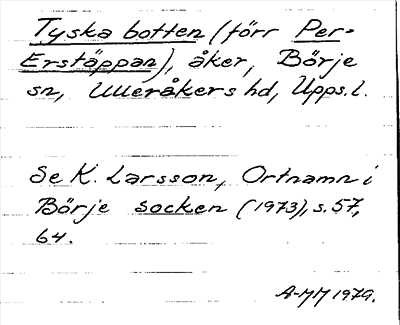 Tyska botten (förr Per-
Erstäppan), åker, Börje
sn, Ulleråkers hd, Upps.l.
Se K. Larsson, Ortnamn i
Börje socken (1973), s. 57,
64.
A-MM 1979.